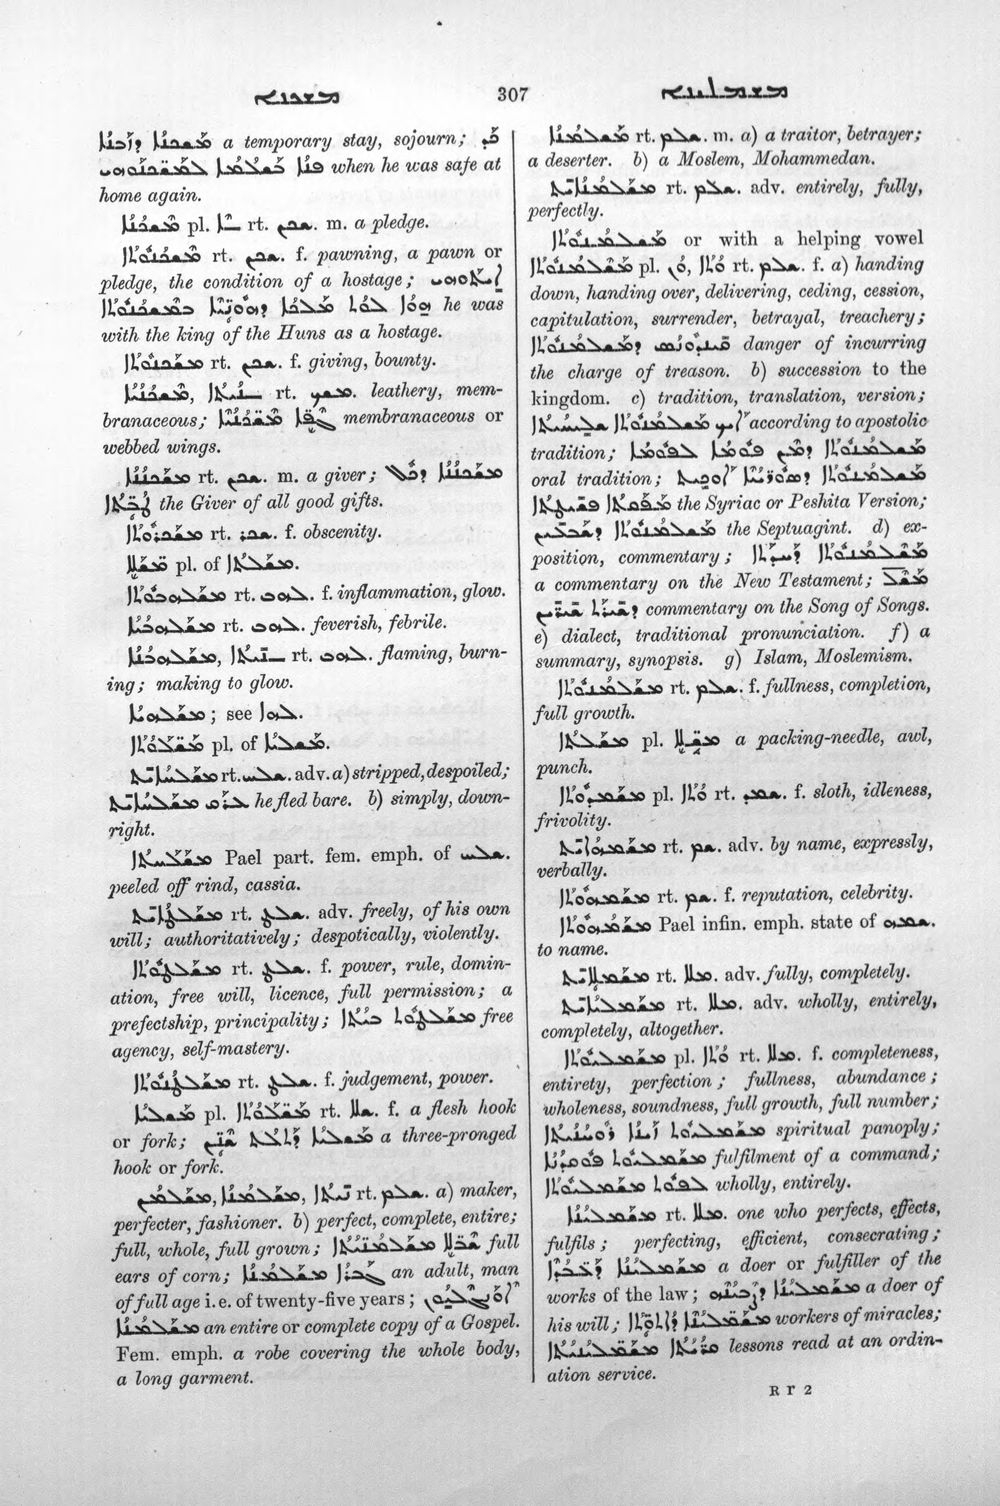 ܡܫܟܢܐ 307 ܡܫܡܠܝܢܐ
ܡܫܟܢܐ a temporary stay, sojourn; ܟܕ
when he was safe at
home again.
ܡܫܟܢܐ pl. ܢܐ rt. ܫܟܢ. m. a pledge.
ܡܫܟܢܘܬܐ rt. ܫܟܢ. f. pawning, a pawn or
pledge, the condition of a hostage;
ܗܘܐ ܠܘܬ ܡܠܟܐ ܕܗܘ̈ܢܝܐ ܒܡܫܟܢܘܬܐ he was
with the king of the Huns as a hostage.
ܡܫܟܢܘܬܐ rt. ܫܟܢ. f. giving, bounty.
rt. ܡܫܟ. leathery, mem-
branaceous; membranaceous or
webbed wings.
ܡܫܟܢܢܐ rt. ܫܟܢ. m. a giver; ܡܫܟܢܢܐ ܕܟܠ
ܛܒ̈ܬܐ the Giver of all good gifts.
ܡܫܟܪܘܬܐ rt. ܫܟܪ. f. obscenity.
pl. of ܡܫܠܬܐ.
ܡܫܠܗܒܘܬܐ rt. ܠܗܒ. f. inflammation, glow.
ܡܫܠܗܒܝܐ rt. ܠܗܒ. feverish, febrile.
ܡܫܠܗܒܢܐ, ܢܝܬܐ rt. ܠܗܒ. flaming, burn-
ing; making to glow.
ܡܫܠܗܝܐ; see ܠܗܐ.
pl. of ܡܫܠܝܐ.
ܡܫܠܚܐܝܬ rt. ܫܠܚ. adv. a) stripped, despoiled;
ܥܪܩ ܡܫܠܚܐܝܬ he fled bare. b) simply, down-
right.
ܡܫܠܚܬܐ Pael part. fem. emph. of ܫܠܚ.
peeled off rind, cassia.
ܡܫܠܛܐܝܬ rt. ܫܠܛ. adv. freely, of his own
will; authoritatively; despotically, violently.
ܡܫܠܛܘܬܐ rt. ܫܠܛ. f. power, rule, domin-
ation, free will, licence, full permission; a
prefectship, principality; ܡܫܠܛܘܬ free
agency, self-mastery.
ܡܫܠܛܢܘܬܐ rt. ܫܠܛ. f. judgement, power.
ܡܫܠܝܐ pl. rt. ܫܠܐ. f. a flesh hook
or fork; ܡܫܠܝܐ ܕܬܠܬ ܫܢ̈ܝܢ a three-pronged
hook or fork.
ܡܫܠܡܢ, ܡܫܠܡܢܐ, ܢܝܬܐ rt. ܫܠܡ. a) maker,
perfecter, fashioner. b) perfect, complete, entire;
full, whole, full grown; full
ears of corn; ܓܒܪܐ ܡܫܠܡܢܐ an adult, man
of full age i.e. of twenty-five years; ܐܘܢܓܠܝܘܢ
ܡܫܠܡܢܐ an entire or complete copy of a Gospel.
Fem. emph. a robe covering the whole body,
a long garment.
ܡܫܠܡܢܐ rt. ܫܠܡ. m. a) a traitor, betrayer;
a deserter. b) a Moslem, Mohammedan.
ܡܫܠܡܢܐܝܬ rt. ܫܠܡ. adv. entirely, fully,
perfectly.
ܡܫܠܡܢܘܬܐ or with a helping vowel
ܡܫܠܡܢܘܬܐ pl. rt. ܫܠܡ. f. a) handing
down, handing over, delivering, ceding, cession,
capitulation, surrender, betrayal, treachery;
ܩܝܢܕܘܢܘܣ ܕܡܫܠܡܢܘܬܐ danger of incurring
the charge of treason. b) succession to the
kingdom. c) tradition, translation, version;
ܐܝܟ ܡܫܠܡܢܘܬܐ ܫܠܝܚܝܬܐ according to apostolic
tradition; ܡܫܠܡܢܘܬܐ ܕܡܢ ܦܘܡܐ ܠܦܘܡܐ
oral tradition; ܡܫܠܡܢܘܬܐ ܕܣܘܪ̈ܝܝܐ
ܡܦܩܬܐ ܦܫܝܛܬܐ the Syriac or Peshita Version;
ܡܫܠܡܢܘܬܐ ܕܫܒܥܝܢ the Septuagint. d) ex-
position, commentary; ܡܫܠܡܢܘܬܐ ܕܚܕܬܐ
a commentary on the New Testament;
ܕܫܝܪܬ ܫܝܪ̈ܝܢ commentary on the Song of Songs.
e) dialect, traditional pronunciation. f) a
summary, synopsis. g) Islam, Moslemism.
ܡܫܠܡܢܘܬܐ rt. ܫܠܡ. f. fullness, completion,
full growth.
ܡܫܠܬܐ pl. a packing-needle, awl,
punch.
pl. rt. f. sloth, idleness,
frivolity.
ܡܫܡܗܐܝܬ rt. ܫܡ. adv. by name, expressly,
verbally.
ܡܫܡܗܘܬܐ rt. ܫܡ. f. reputation, celebrity.
ܡܫܡܗܘܬܐ Pael infin. emph. state of ܫܡܗ.
to name.
ܡܫܡܠܐܝܬ rt. ܡܠܐ. adv. fully, completely.
ܡܫܡܠܝܐܝܬ rt. ܡܠܐ. adv. wholly, entirely,
completely, altogether.
ܡܫܡܠܝܘܬܐ pl. rt. ܡܠܐ. f. completeness,
entirety, perfection; fullness, abundance;
wholeness, soundness, full growth, full number;
ܡܫܡܠܝܘܬ ܙܝܢܐ ܪܘܚܢܝܬܐ spiritual panoply;
ܡܫܡܠܝܘܬ ܦܘܩܕܢܐ fulfilment of a command;
ܠܦܘܬ ܡܫܡܠܝܘܬܐ wholly, entirely.
ܡܫܡܠܝܢܐ rt. ܡܠܐ. one who perfects, effects,
fulfils; perfecting, efficient, consecrating;
ܡܫܡܠܝܢܐ ܕܥܒ̈ܕܐ a doer or fulfiller of the
works of the law; ܡܫܡܠܝܢܐ ܕܨܒܝܢܗ a doer of
his will; ܡܫܡ̈ܠܝܢܐ workers of miracles;
ܩܪ̈ܝܬܐ lessons read at an ordin-
ation service.
R r 2